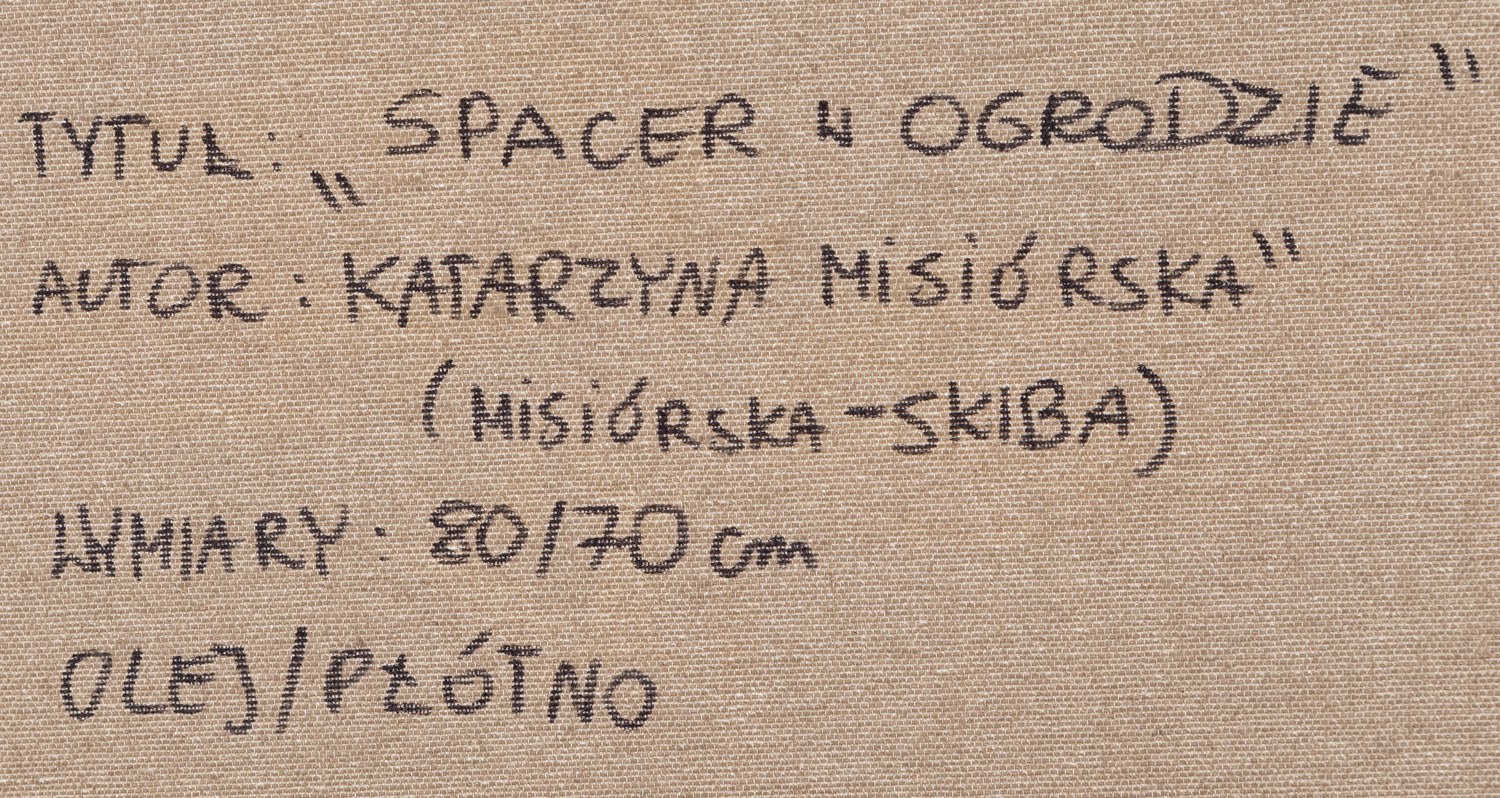 TYTUŁ: „SPACER W OGRODZIE"
AUTOR: KATARZYNA MISIÓRSKA"
(MISIÓRSKA-SKIBA)
WYMIARY: 80/70 cm
OLEJ/PŁÓTNO